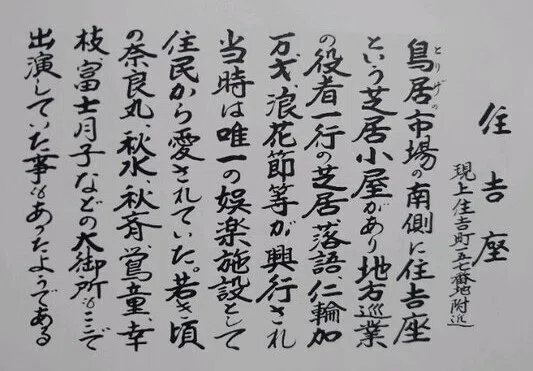 住吉座
現上住吉町一五七番地附近
鳥居の市場の南側に住吉座
とりげ
という芝居小屋があり地方巡業
の役者一行の芝居、落語、仁輪加
万才、浪花節等が興行され
当時は唯一の娯楽施設として
住民から愛されていた。若き頃
の奈良丸、秋水、秋斉、鴬童、幸
枝、富士月子などの大御所もここで
出演していた事もあったようである